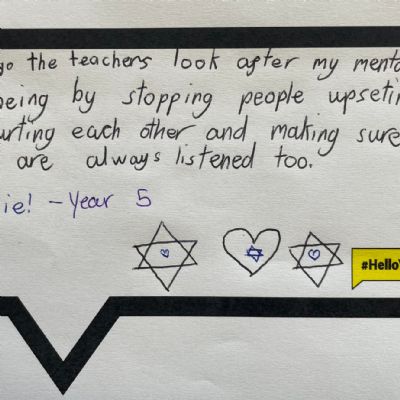 go the teachers look after my menta
being by stopping people upsetin
urting each other and making sure
are always listened too.
ie! - Year 5
#Hello